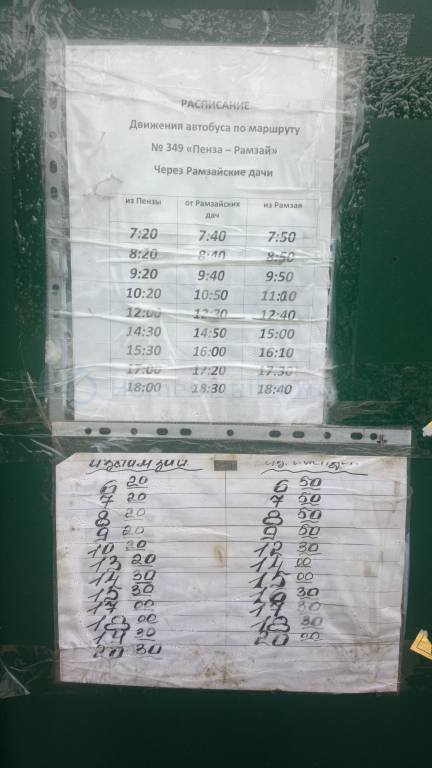 РАСПИСАНИЕ
Движения автобуса по маршруту
№ 349 «Пенза – Рамзай»
Через Рамзайские дачи
из Пензы от Рамзайских дач из Рамзая
7:20 7:40 7:50
8:20 8:40 8:50
9:20 9:40 9:50
10:20 10:50 11:00
12:00 12:30 12:40
14:30 14:50 15:00
15:30 16:00 16:10
17:00 17:20 17:30
18:00 18:30 18:40
6 20 6 50
7 20 7 50
8 20 8 50
9 20 9 50
10 20 12 30
13 20 14 00
14 30 15 00
15 30 16 30
17 00 17 30
18 00 18 30
19 30 20 00
20 30